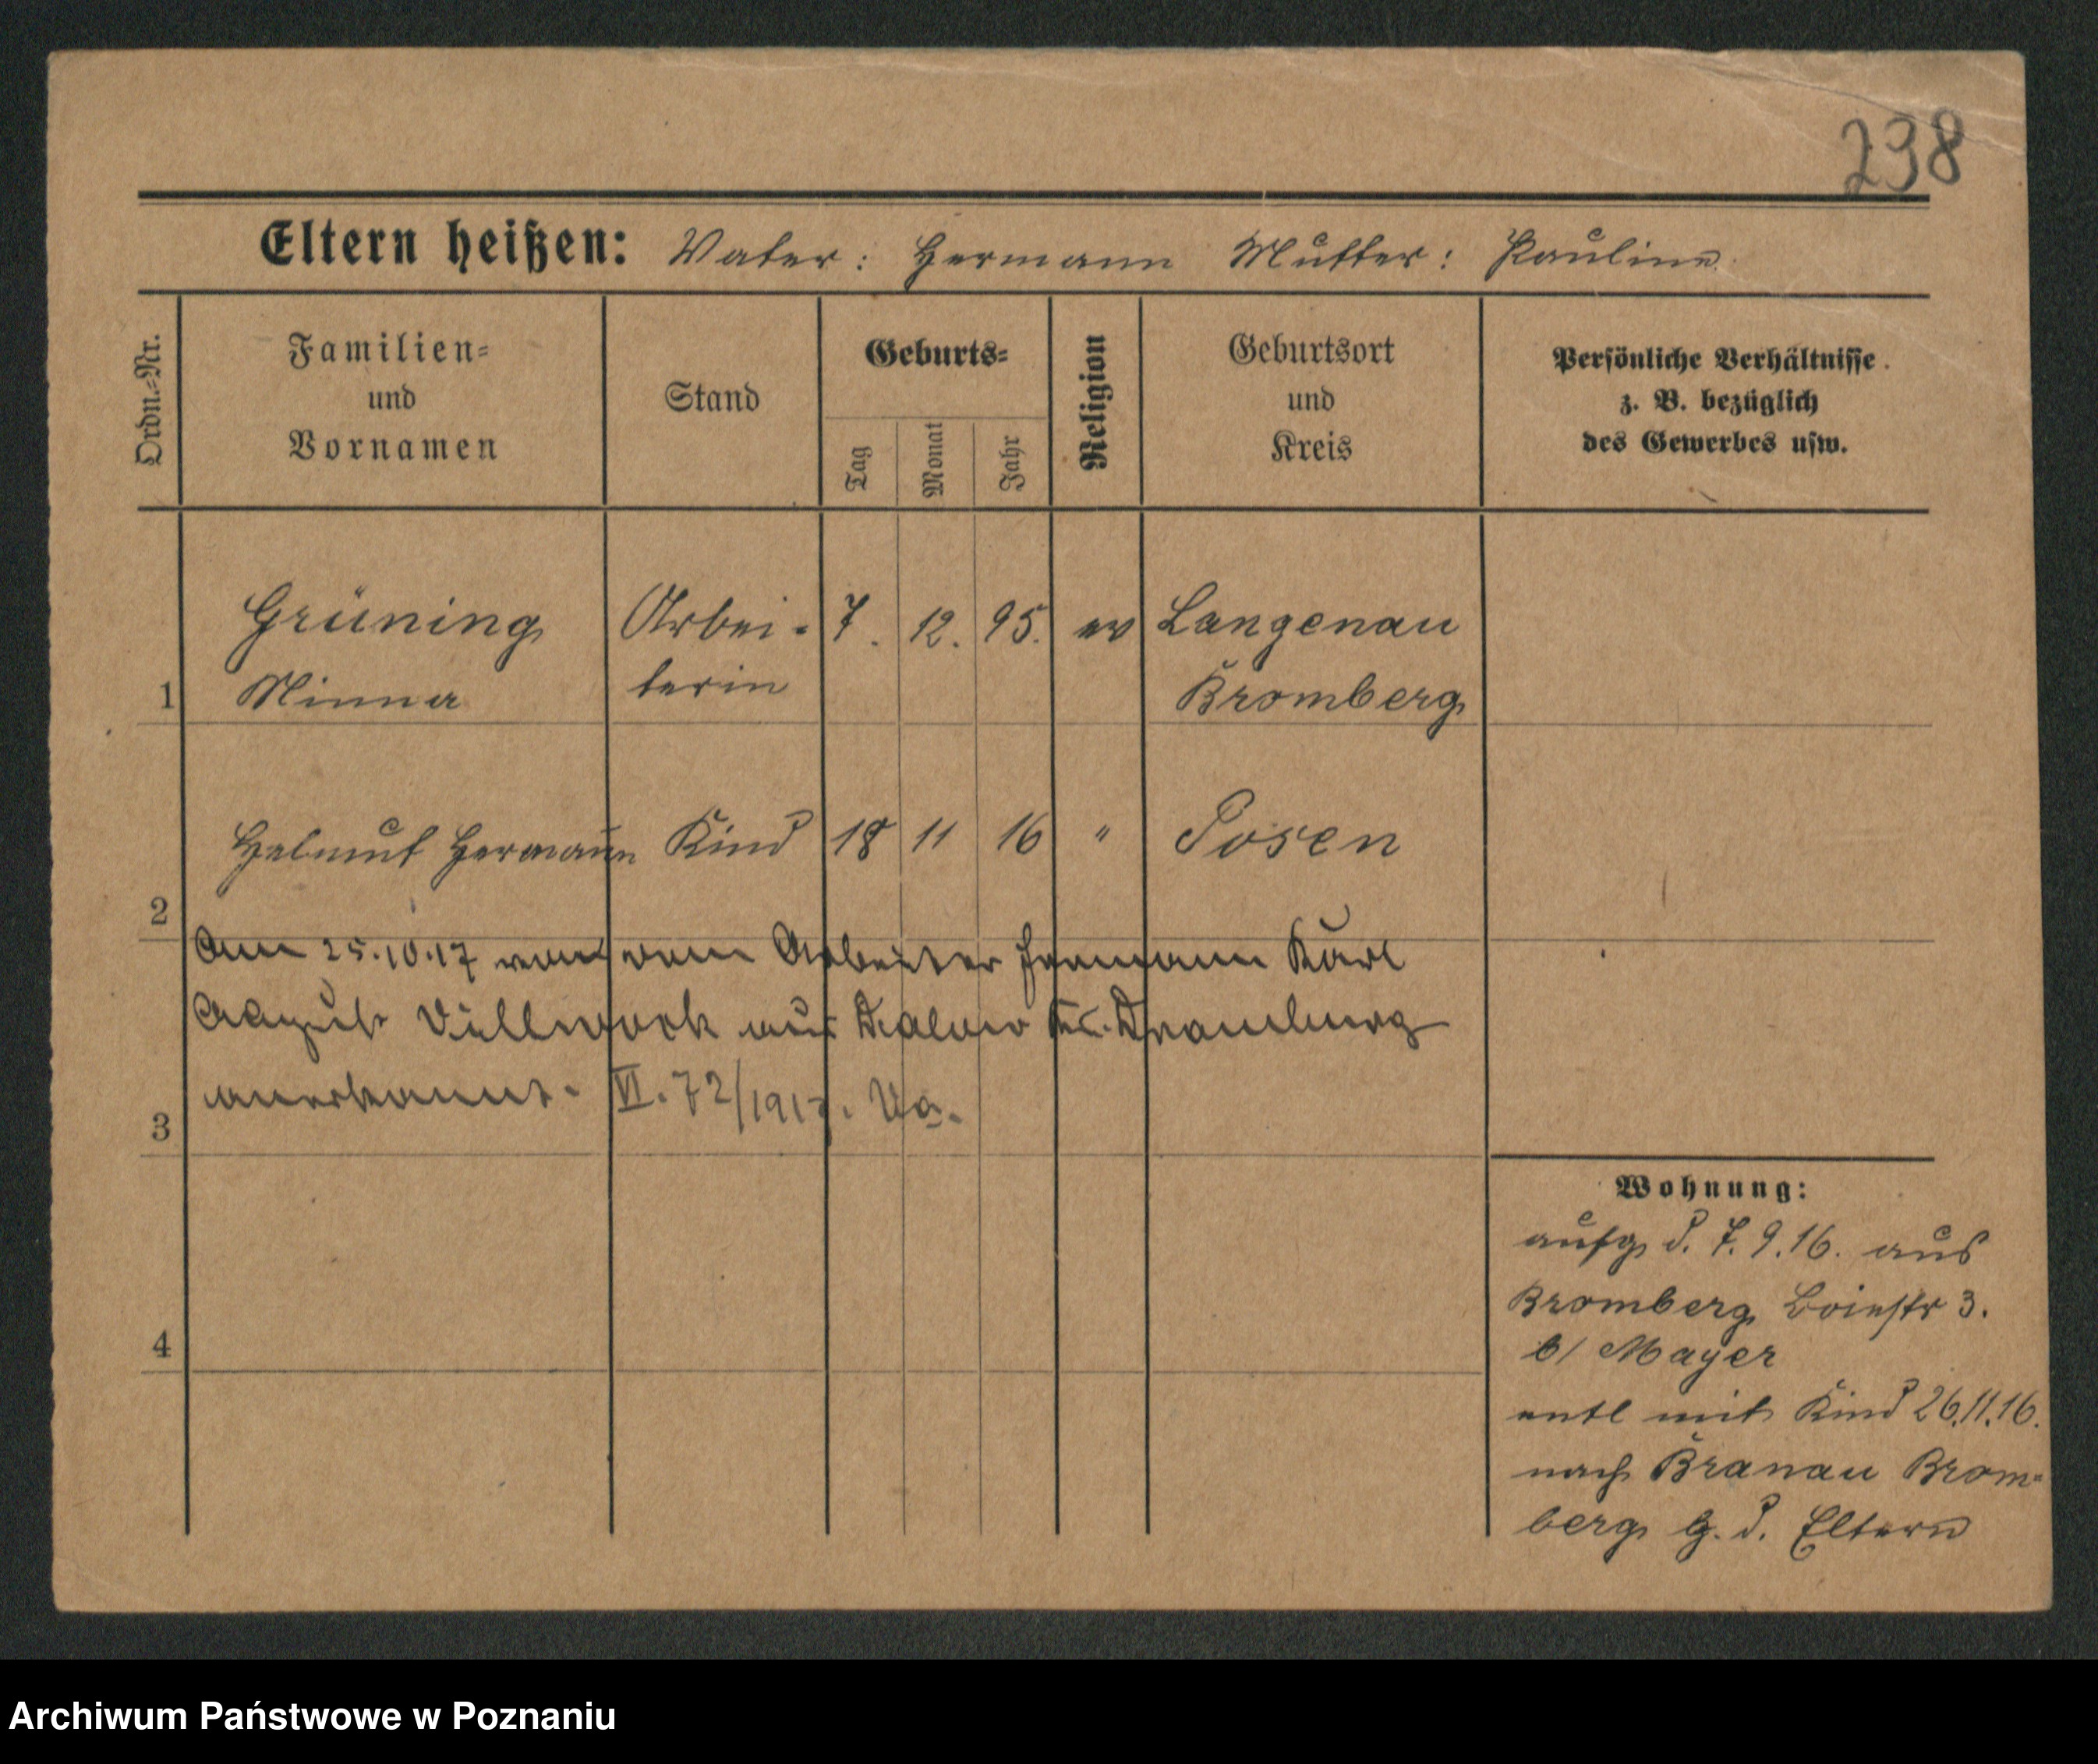 238
Eltern heißen: Vater: Hermann Mutter: Pauline
Ordn.=Nr.
Familien=
und
Vornamen
Stand
Geburts=
Tag
Monat
Jahr
Religion
Geburtsort
und
Kreis
Persönliche Verhältnisse
z. B. bezüglich
des Gewerbes usw.
Grüning Arbei- 7. 12. 95. ev Langenau
1 Minna terin Bromberg
Helmut Hermann Kind 18 11 16 " Posen
2
Am 25.10.17 von dem Arbeiter Hermann Karl
August Villwock aus Kr. Dramburg
3 anerkannt. VI. 72/1917.
4
Wohnung:
aufg d. 7.9.16. aus
Bromberg 3.
b/ Mayer
entl mit Kind 26.11.16.
nach Branau Brom=
berg z. d. Eltern
Archiwum Państwowe w Poznaniu